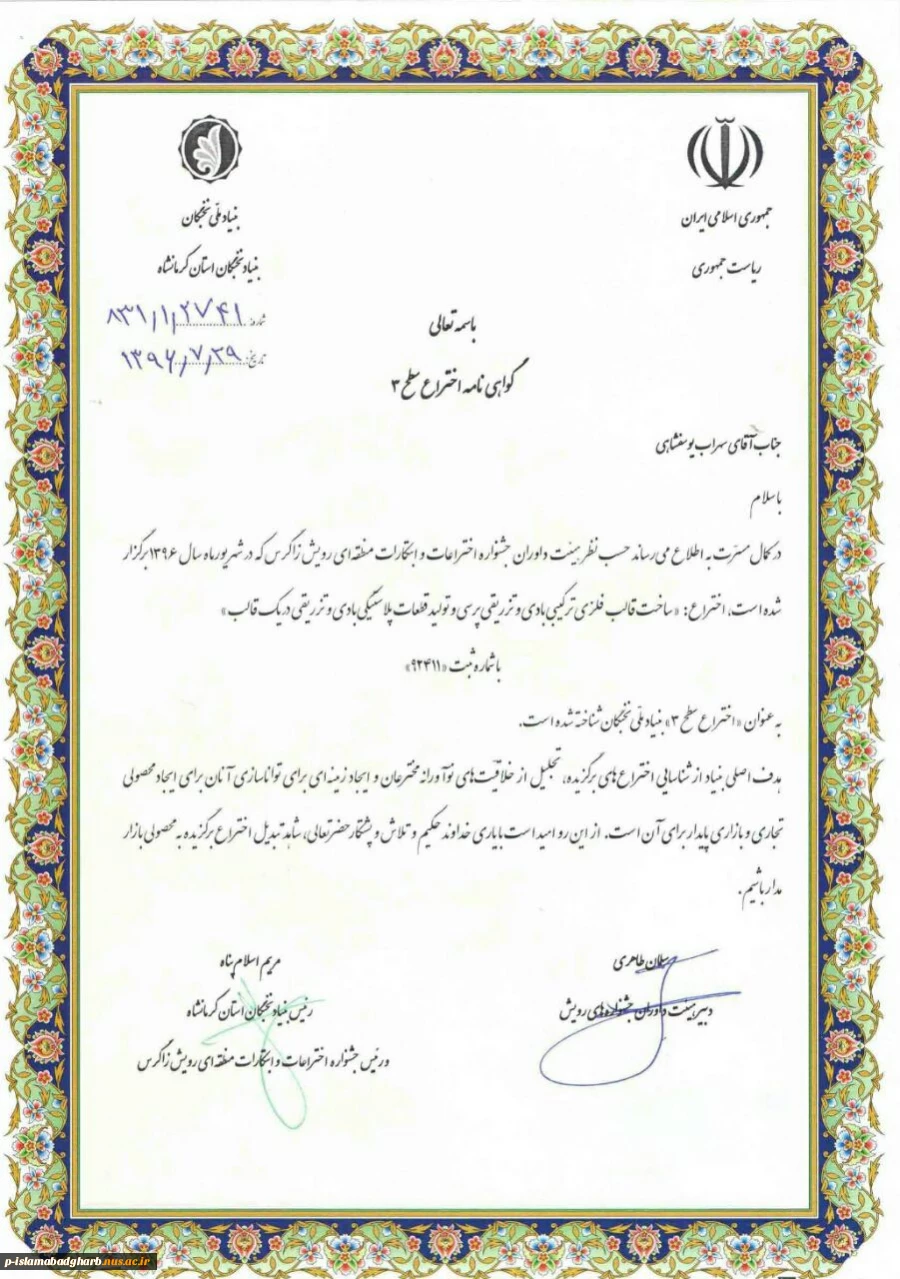 جمهوری اسلامی ایران
ریاست جمهوری
بنیاد ملّی نخبگان
بنیاد نخبگان استان کرمانشاه
شماره: ۸۳۱/۱/۲۷۴۱
تاریخ: ۱۳۹۶/۷/۲۹
باسمه تعالی
گواهی نامه اختراع سطح ۳
جناب آقای سهراب یوسفشاهی
با سلام
در کمال مسرّت به اطلاع می رساند حسب نظر هیئت داوران جشنواره اختراعات و ابتکارات منطقه ای رویش زاگرس که در شهریور ماه سال ۱۳۹۶ برگزار
شده است، اختراع: «ساخت قالب فلزی ترکیبی بادی و تزریقی پرسی و تولید قطعات پلاستیکی بادی و تزریقی در یک قالب»
با شماره ثبت «۹۲۴۱۱»
به عنوان «اختراع سطح ۳» بنیاد ملّی نخبگان شناخته شده است.
هدف اصلی بنیاد از شناسایی اختراع های برگزیده، تجلیل از خلاقیّت های نوآورانه مخترعان و ایجاد زمینه ای برای توانا سازی آنان برای ایجاد محصولی
تجاری و بازاری پایدار برای آن است. از این رو امید است با یاری خداوند حکیم و تلاش و پشتکار حضرتعالی، شاهد تبدیل اختراع برگزیده به محصولی بازار
مدار باشیم.
سلمان طاهری
دبیر هیئت داوران جشنواره های رویش
مریم اسلام پناه
رئیس بنیاد نخبگان استان کرمانشاه
و رئیس جشنواره اختراعات و ابتکارات منطقه ای رویش زاگرس
p-islamabadgharb.nus.ac.ir